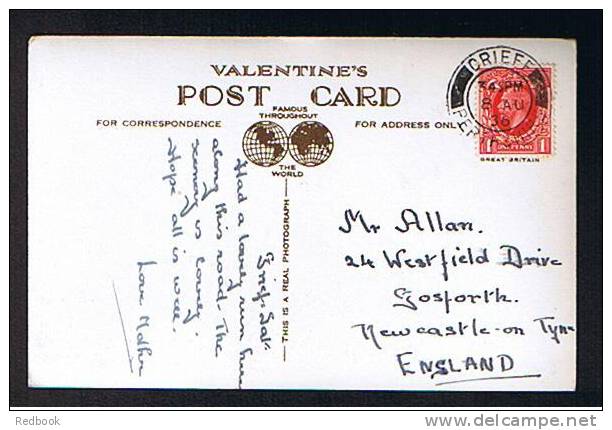 VALENTINE'S
POST CARD
FAMOUS
THROUGHOUT
THE
WORLD
FOR CORRESPONDENCE
FOR ADDRESS ONLY
THIS IS A REAL PHOTOGRAPH
CRIEFF
PM
8 AU
36
ONE PENNY
GREAT BRITAIN
Crieff. Sat.
Had a lovely run here
along this road. The
scenery is lovely.
Hope all is well.
Love Mother
Mr Allan.
24 Westfield Drive
Gosforth.
Newcastle-on Tyne
ENGLAND
Redbook
www.delcampe.net